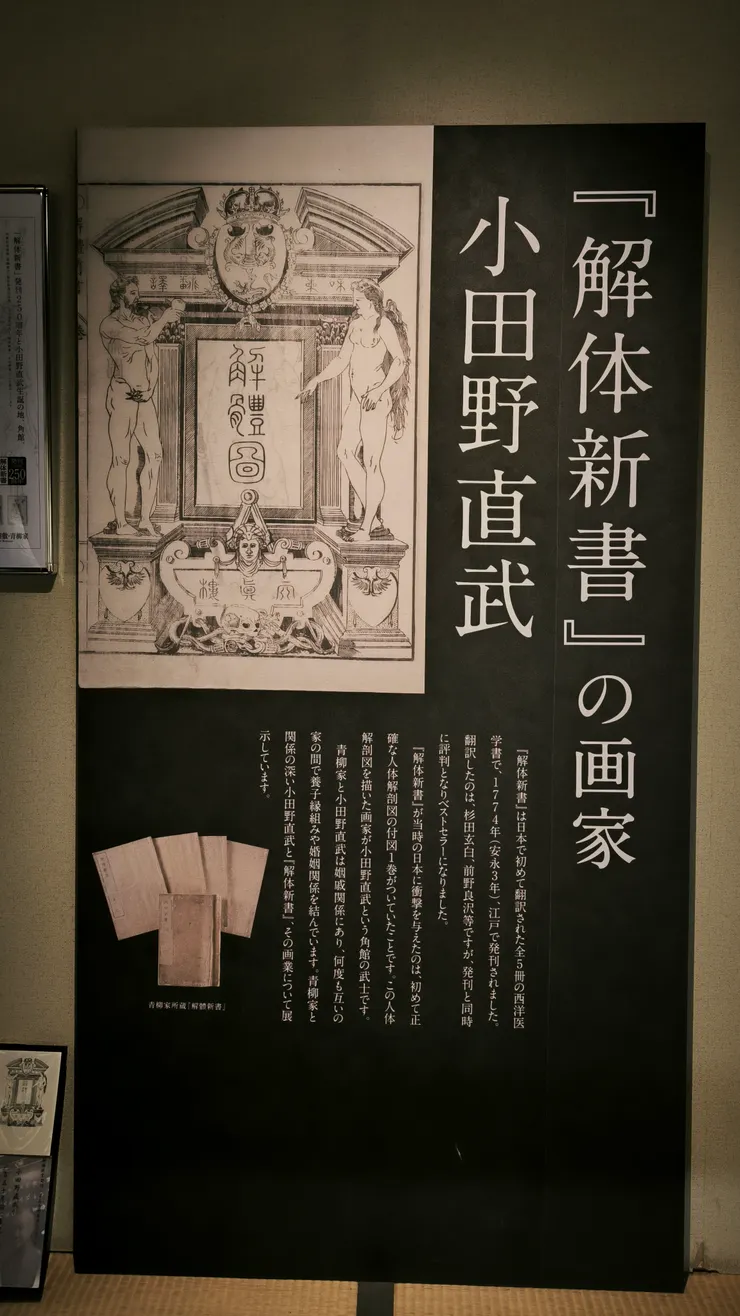 『解体新書』の画家
小田野直武
『解体新書』は日本で初めて翻訳された全5冊の西洋医
学書で、1774年(安永3年)、江戸で発刊されました。
翻訳したのは、杉田玄白、前野良沢等ですが、発刊と同時
に評判となりベストセラーになりました。
『解体新書』が当時の日本に衝撃を与えたのは、初めて正
確な人体解剖図の付図1巻がついていたことです。この人体
解剖図を描いた画家が小田野直武という角館の武士です。
青柳家と小田野直武は姻戚関係にあり、何度も互いの
家の間で養子縁組みや婚姻関係を結んでいます。青柳家と
関係の深い小田野直武と『解体新書』、その画業について展
示しています。
解體圖
青柳家所蔵『解體新書』
『解体新書』発刊250周年と小田野直武生誕の地、角館
250